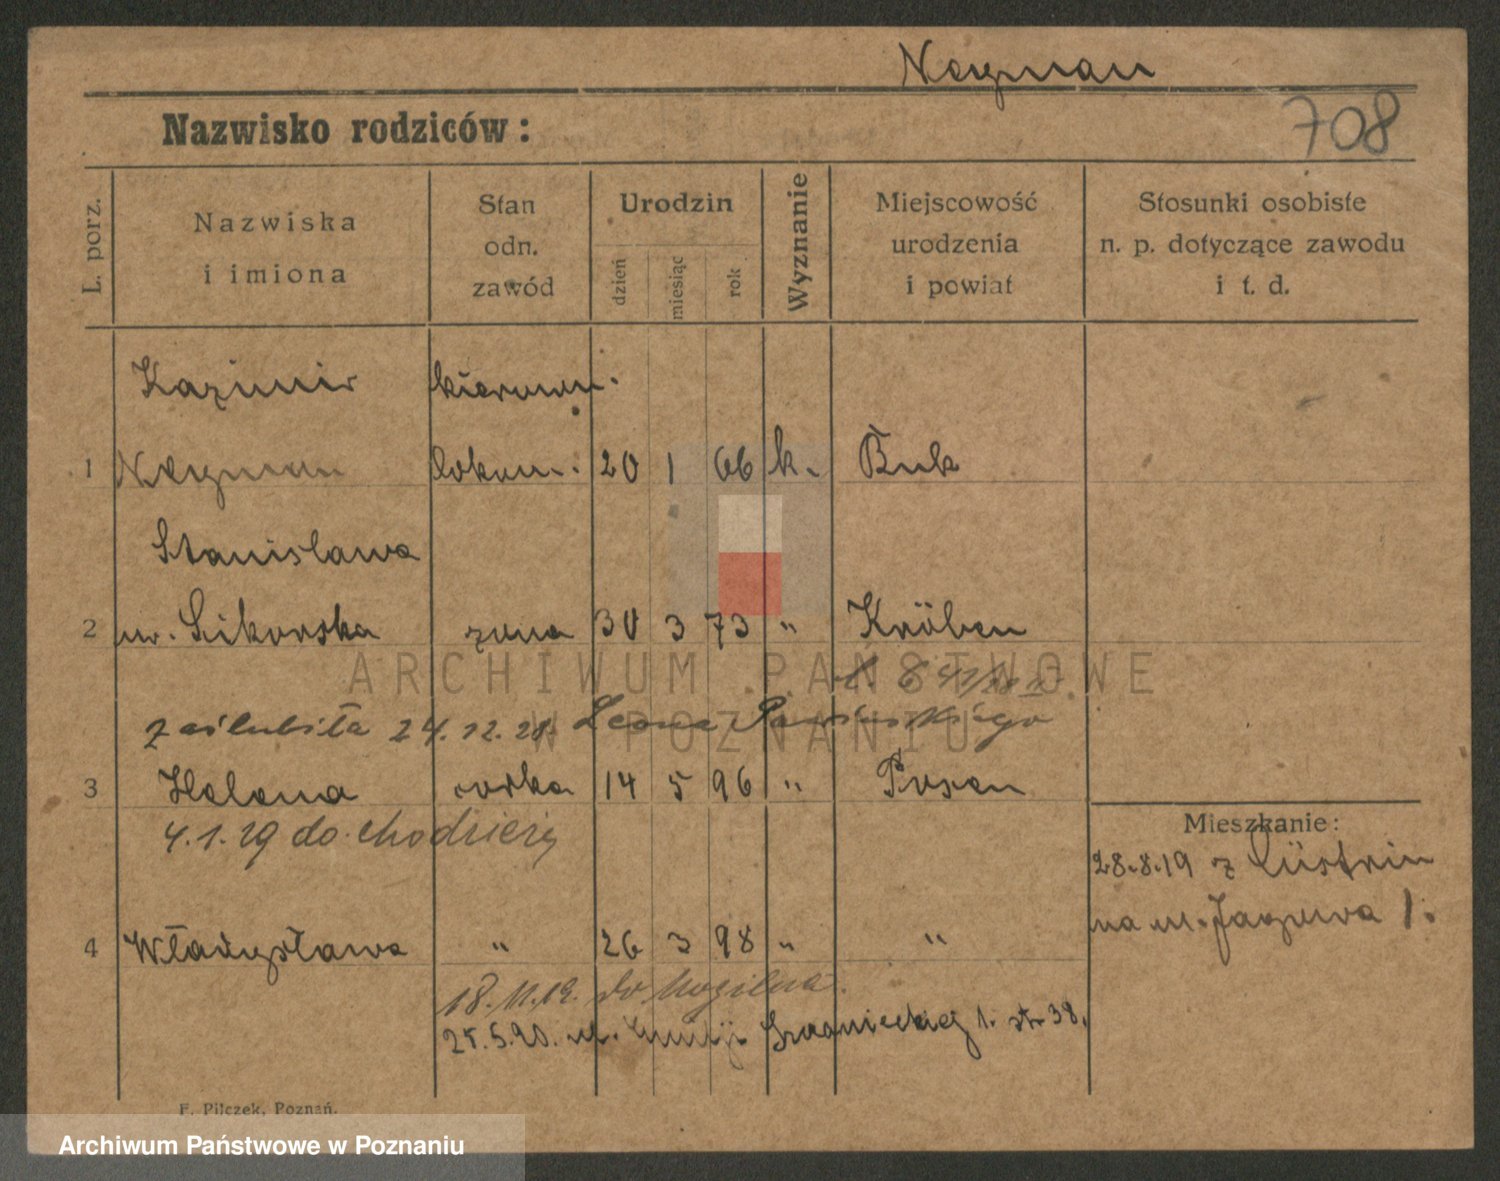 Neyman
Nazwisko rodziców:
708
L. porz.
Nazwiska
i imiona
Stan
odn.
zawód
Urodzin
dzień
miesiąc
rok
Wyznanie
Miejscowość
urodzenia
i powiat
Stosunki osobiste
n. p. dotyczące zawodu
i t. d.
Kazimir kierown.
1 Neyman lokom. 20 1 66 k. Buk
Stanisława
2 ur. Sikorska żona 30 3 73 " Kröben
zaślubiła 24.12.28. Leona
3 Helena córka 14 5 96 " Posen
4.1.29 do Chodzieży
4 Władysława " 26 3 98 " "
18.11.19. do Mogilna.
25.5.20. ul. 1. str 38.
Mieszkanie:
28.8.19 z Cüstrin
na ul. 1.
F. Pilczek, Poznań.
ARCHIWUM PAŃSTWOWE
W POZNANIU
Archiwum Państwowe w Poznaniu